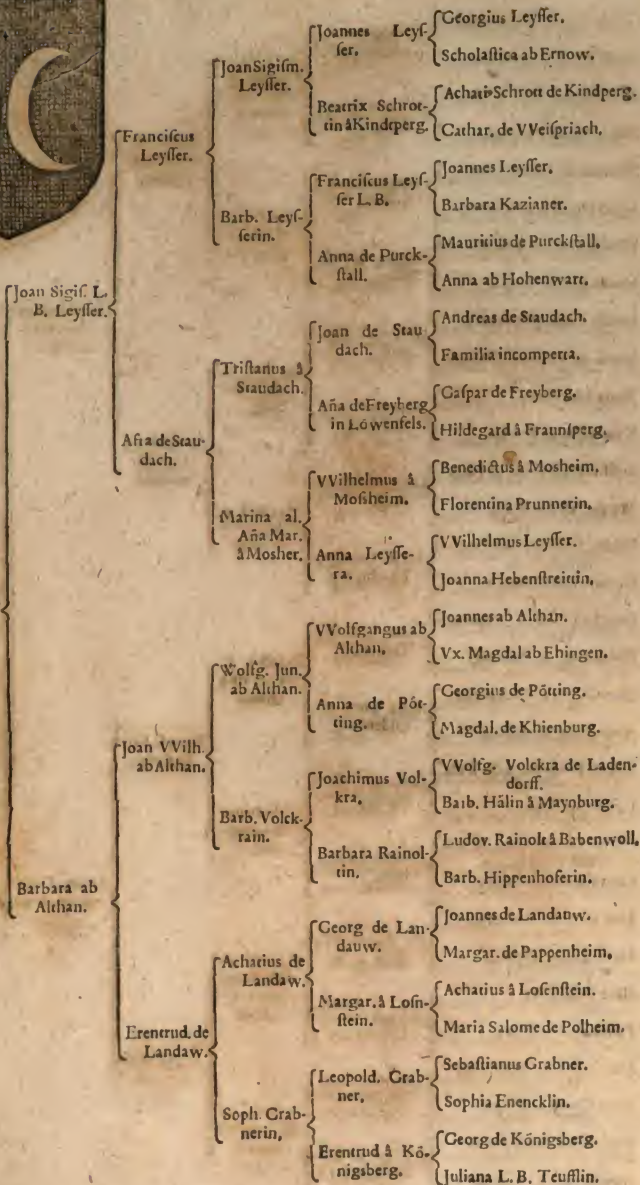 Joan Sigiſ. L.
B. Leyſſer.
Barbara ab
Althan.
Franciſcus
Leyſſer.
Aña de Stau-
dach.
Joan VVilh.
ab Althan.
Erentrud. de
Landaw.
Joan Sigiſm.
Leyſſer.
Barb. Leyſ-
ſerin.
Triſtanus â
Staudach.
Marina al.
Aña Mar.
â Mosher.
Wolfg. Jun.
ab Althan.
Barb. Volck-
rain.
Achatius de
Landaw.
Soph. Grab-
nerin,
Joannes Leyſ-
ſer.
Beatrix Schrot-
tin â Kindtperg.
Franciſcus Leyſ-
ſer L. B.
Anna de Purck-
ſtall.
Joan de Stau
dach.
Aña de Freyberg
in Löwenfels.
VVilhelmus â
Moſsheim.
Anna Leyſſe-
ra.
VVolfgangus ab
Althan,
Anna de Pöt-
ting.
Joachimus Vol-
kra,
Barbara Rainol-
tin,
Georg de Lan-
dauw.
Margar. â Loſn-
ſtein.
Leopold. Grab-
ner,
Erentrud â Kö-
nigsberg.
Georgius Leyſſer.
Scholaſtica ab Ernow.
Achati Schrott de Kindperg.
Cathar. de VVeiſpriach.
Joannes Leyſſer,
Barbara Kazianer.
Mauritius de Purckſtall,
Anna ab Hohenwart.
Andreas de Staudach.
Familia incomperta.
Gaſpar de Freyberg.
Hildegard â Fraunſperg.
Benedictus â Mosheim,
Florentina Prunnerin.
VVilhelmus Leyſſer.
Joanna Hebenſtreittin,
Joannes ab Althan.
Vx. Magdal ab Ehingen.
Georgius de Pötting.
Magdal. de Khienburg.
VVolfg. Volckra de Laden-
dorff.
Barb. Hälin â Maynburg.
Ludov. Rainolt â Babenwoll,
Barb. Hippenhoferin.
Joannes de Landauw.
Margar. de Pappenheim,
Achatius â Loſenſtein.
Maria Salome de Polheim.
Sebaſtianus Grabner.
Sophia Enencklin.
Georg de Königsberg.
Juliana L. B. Teufflin.